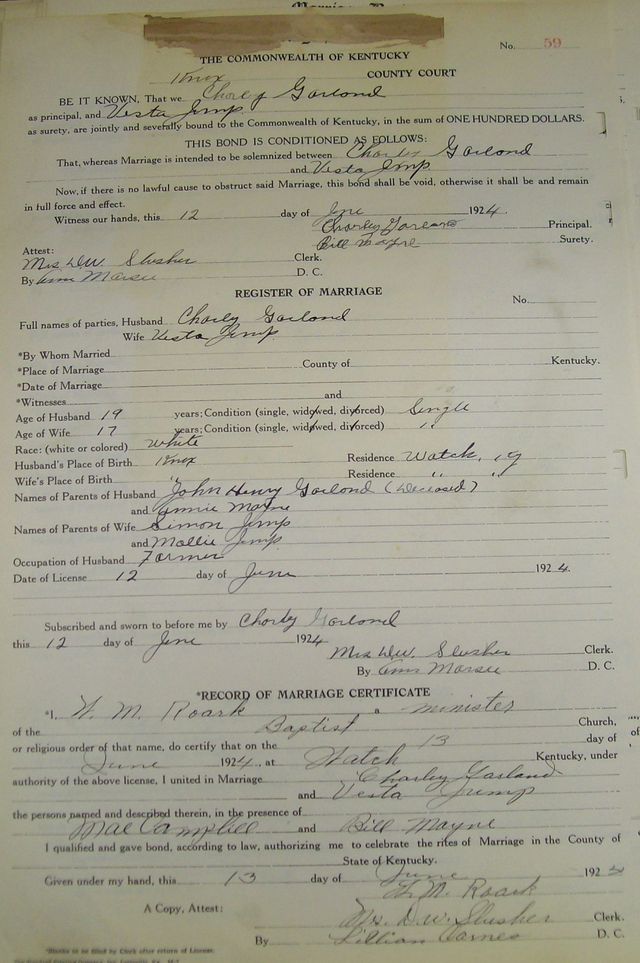 No. 59
THE COMMONWEALTH OF KENTUCKY
Knox COUNTY COURT
BE IT KNOWN, That we Charley Garland
as principal, and Vesta Jump
as surety, are jointly and severally bound to the Commonwealth of Kentucky, in the sum of ONE HUNDRED DOLLARS.
THIS BOND IS CONDITIONED AS FOLLOWS:
That, whereas Marriage is intended to be solemnized between Charley Garland
and Vesta Jump
Now, if there is no lawful cause to obstruct said Marriage, this bond shall be void, otherwise it shall be and remain
in full force and effect.
Witness our hands, this 12 day of June 1924.
Charley Garland Principal.
Bill Mayne Surety.
Attest:
Mrs DW Slusher Clerk.
By D. C.
REGISTER OF MARRIAGE
No.
Full names of parties, Husband Charley Garland
Wife Vesta Jump
*By Whom Married
*Place of Marriage County of Kentucky.
*Date of Marriage
*Witnesses and
Age of Husband 19 years; Condition (single, widowed, divorced) Single
Age of Wife 17 years; Condition (single, widowed, divorced) "
Race: (white or colored) White
Husband's Place of Birth Knox Residence Watch, Ky
Wife's Place of Birth " Residence " "
Names of Parents of Husband John Henry Garland (Deceased)
and Annie Mayne
Names of Parents of Wife Simon Jump
and Mollie Jump
Occupation of Husband Farmer
Date of License 12 day of June 1924.
Subscribed and sworn to before me by Charley Garland
this 12 day of June 1924
Mrs DW Slusher Clerk.
By D. C.
*RECORD OF MARRIAGE CERTIFICATE
*I, W. M. Roark a minister
of the Baptist Church,
or religious order of that name, do certify that on the 13 day of
June 1924, at Watch Kentucky, under
authority of the above license, I united in Marriage Charley Garland
and Vesta Jump
the persons named and described therein, in the presence of
Mae Campbell and Bill Mayne
I qualified and gave bond, according to law, authorizing me to celebrate the rites of Marriage in the County of
State of Kentucky.
Given under my hand, this 13 day of June 192
W. M. Roark
A Copy, Attest: Mrs. D. W. Slusher Clerk.
By Lillian D. C.
*Blanks to be filled by Clerk after return of License.